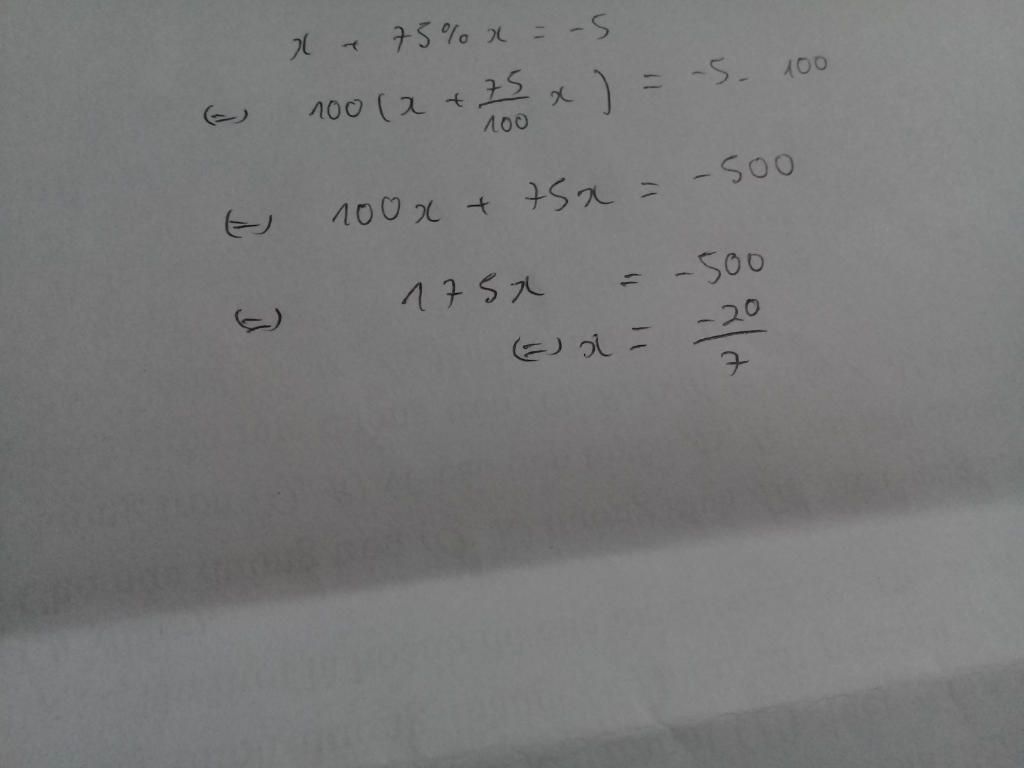 x + 75% x = -5
(=) 100 ( x + 75/100 x ) = -5 . 100
(=) 100x + 75x = -500
(=) 175x = -500
(=) x = -20/7